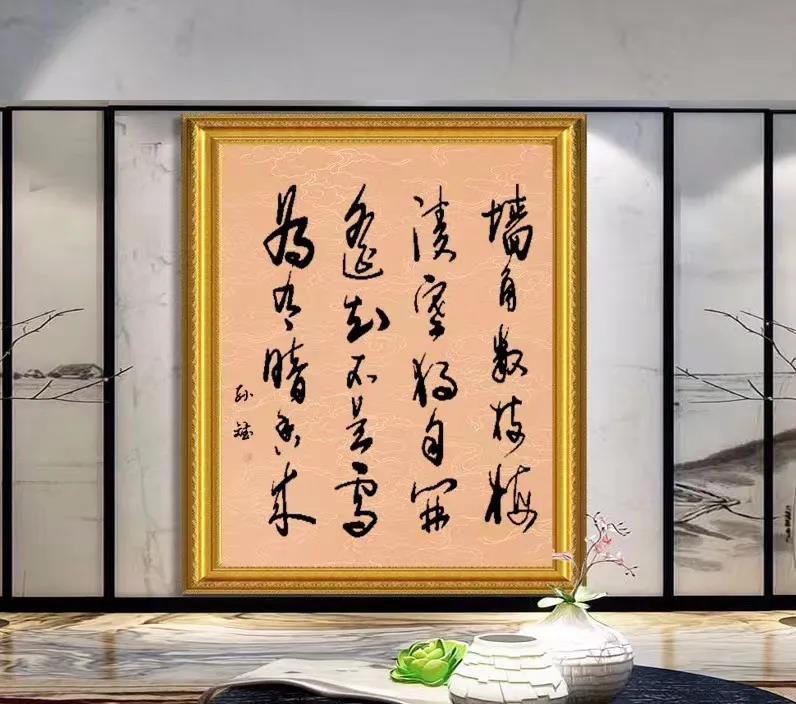 墙角数枝梅
凌寒独自开
遥知不是雪
为有暗香来
孙斌